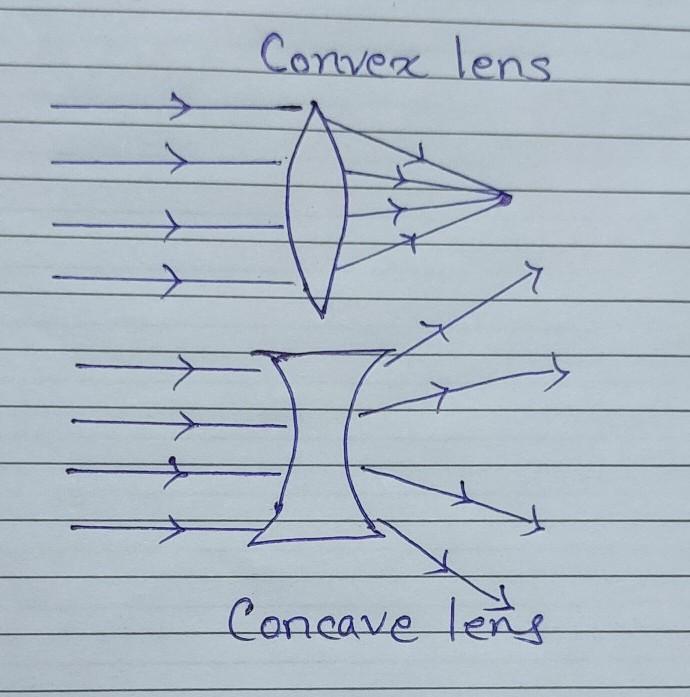 Convex lens
Concave lens